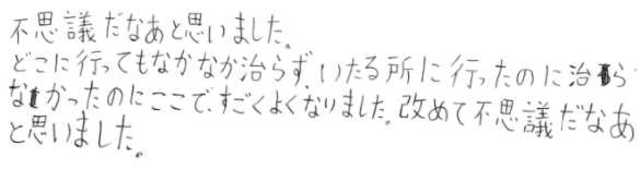 不思議だなあと思いました。
どこに行ってもなかなか治らず、いたる所に行ったのに治ら
なかったのにここで、すごくよくなりました。改めて不思議だなあ
と思いました。